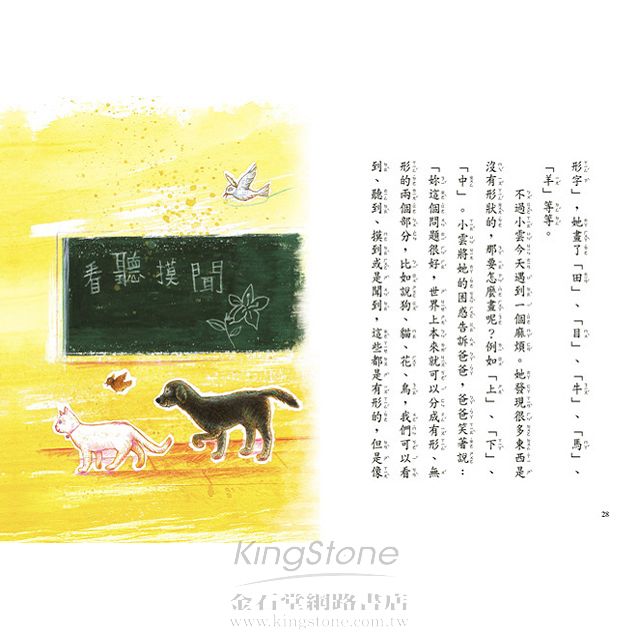 形字」，她畫了「田」、「目」、「牛」、「馬」、
「羊」等等。
不過小雲今天遇到一個麻煩。她發現很多東西是
沒有形狀的，那要怎麼畫呢？例如「上」、「下」、
「中」。小雲將她的困惑告訴爸爸，爸爸笑著說：
「妳這個問題很好，世界上本來就可以分成有形、無
形的兩個部分，比如說狗、貓、花、鳥，我們可以看
到、聽到、摸到或是聞到，這些都是有形的，但是像
28
看聽摸聞
KingStone
金石堂網路書店
www.kingstone.com.tw